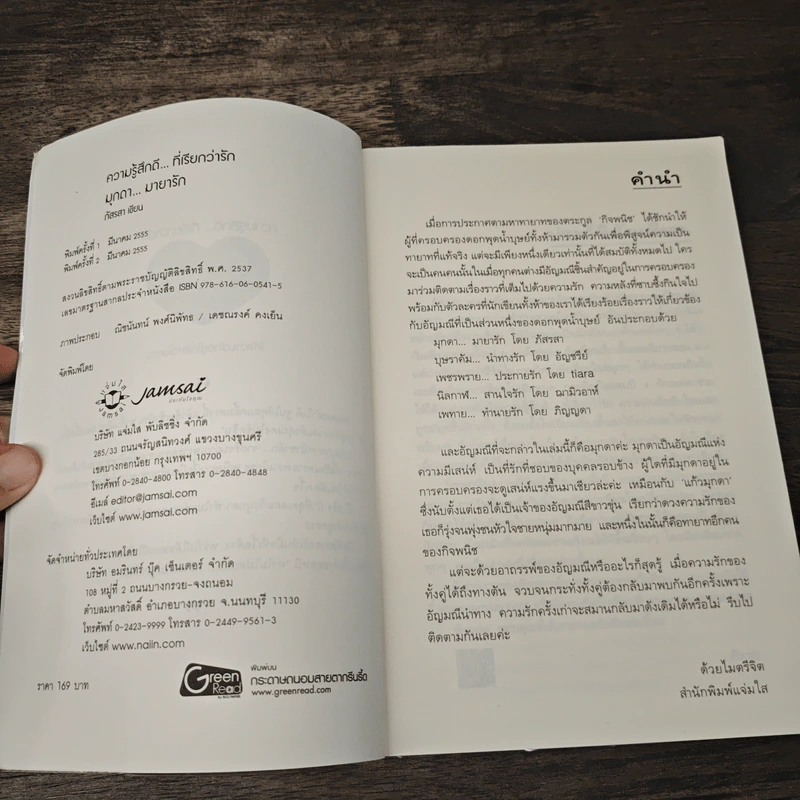 ความรู้สึกดี... ที่เรียกว่ารัก
มุกดา... มายารัก
ภัสรสา เขียน
พิมพ์ครั้งที่ 1 มีนาคม 2555
พิมพ์ครั้งที่ 2 มีนาคม 2555
สงวนลิขสิทธิ์ตามพระราชบัญญัติลิขสิทธิ์ พ.ศ. 2537
เลขมาตรฐานสากลประจำหนังสือ ISBN 978-616-06-0541-5
ภาพประกอบ ณิชนันทน์ พงศ์นิพัทธ / เดชณรงค์ คงเย็น
จัดพิมพ์โดย
แจ่มใส
JAMSAI
Jamsai
บริษัท แจ่มใส พับลิชชิ่ง จำกัด
285/33 ถนนจรัญสนิทวงศ์ แขวงบางขุนศรี
เขตบางกอกน้อย กรุงเทพฯ 10700
โทรศัพท์ 0-2840-4800 โทรสาร 0-2840-4848
อีเมล์ editor@jamsai.com
เว็บไซต์ www.jamsai.com
จัดจำหน่ายทั่วประเทศโดย
บริษัท อมรินทร์ บุ๊ค เซ็นเตอร์ จำกัด
108 หมู่ที่ 2 ถนนบางกรวย-จงถนอม
ตำบลมหาสวัสดิ์ อำเภอบางกรวย จ.นนทบุรี 11130
โทรศัพท์ 0-2423-9999 โทรสาร 0-2449-9561-3
เว็บไซต์ www.naiin.com
ราคา 169 บาท
Green Read
พิมพ์บน
กระดาษถนอมสายตากรีนรี้ด
www.greenread.com
คำนำ
เมื่อการประกาศตามหาทายาทของตระกูล ‘กิจพนิช’ ได้ชักนำให้
ผู้ที่ครอบครองดอกพุดน้ำบุษย์ทั้งห้ามารวมตัวกันเพื่อพิสูจน์ความเป็น
ทายาทที่แท้จริง แต่จะมีเพียงหนึ่งเดียวเท่านั้นที่ได้สมบัติทั้งหมดไป ใคร
จะเป็นคนคนนั้นในเมื่อทุกคนต่างมีอัญมณีชิ้นสำคัญอยู่ในการครอบครอง
มาร่วมติดตามเรื่องราวที่เต็มไปด้วยความรัก ความหลังที่ซาบซึ้งกินใจไป
พร้อมกับตัวละครที่นักเขียนทั้งห้าของเราได้เรียงร้อยเรื่องราวให้เกี่ยวข้อง
กับอัญมณีที่เป็นส่วนหนึ่งของดอกพุดน้ำบุษย์ อันประกอบด้วย
มุกดา... มายารัก โดย ภัสรสา
บุษราคัม... นำทางรัก โดย อัญชรีย์
เพชรพราย... ประกายรัก โดย tiara
นิลกาฬ... สานใจรัก โดย ฌามิวอาห์
เพทาย... ทำนายรัก โดย ภิญญดา
และอัญมณีที่จะกล่าวในเล่มนี้ก็คือมุกดาค่ะ มุกดาเป็นอัญมณีแห่ง
ความมีเสน่ห์ เป็นที่รักที่ชอบของบุคคลรอบข้าง ผู้ใดที่มีมุกดาอยู่ใน
การครอบครองจะดูเสน่ห์แรงขึ้นมาเชียวล่ะค่ะ เหมือนกับ ‘แก้วมุกดา’
ซึ่งนับตั้งแต่เธอได้เป็นเจ้าของอัญมณีสีขาวขุ่น เรียกว่าดวงความรักของ
เธอก็รุ่งจนพุ่งชนหัวใจชายหนุ่มมากมาย และหนึ่งในนั้นก็คือทายาทอีกคน
ของกิจพนิช
แต่จะด้วยอาถรรพ์ของอัญมณีหรืออะไรก็สุดรู้ เมื่อความรักของ
ทั้งคู่ได้ถึงทางตัน จวบจนกระทั่งทั้งคู่ต้องกลับมาพบกันอีกครั้งเพราะ
อัญมณีนำทาง ความรักครั้งเก่าจะสมานกลับมาดังเดิมได้หรือไม่ รีบไป
ติดตามกันเลยค่ะ
ด้วยไมตรีจิต
สำนักพิมพ์แจ่มใส